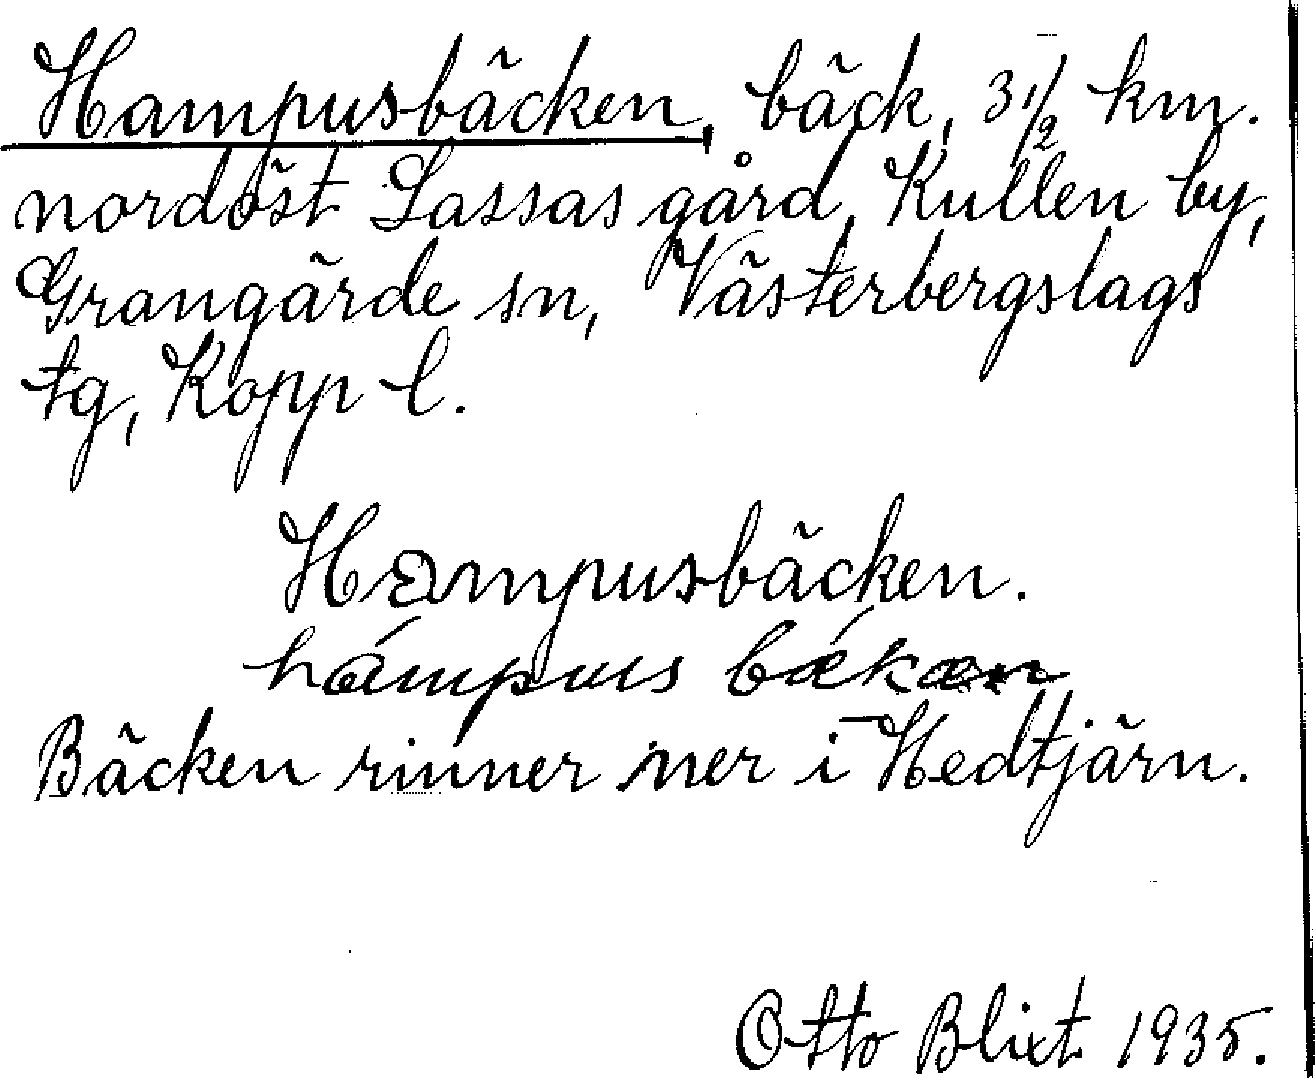 Hampusbäcken, bäck, 3 1/2 km.
nordöst Lassas gård, Kullen by,
Grangärde sn, Västerbergslags
tg, Kopp l.
Hampusbäcken.
hámpus bǽkæn
Bäcken rinner ner i Hedtjärn.
Otto Blixt 1935.